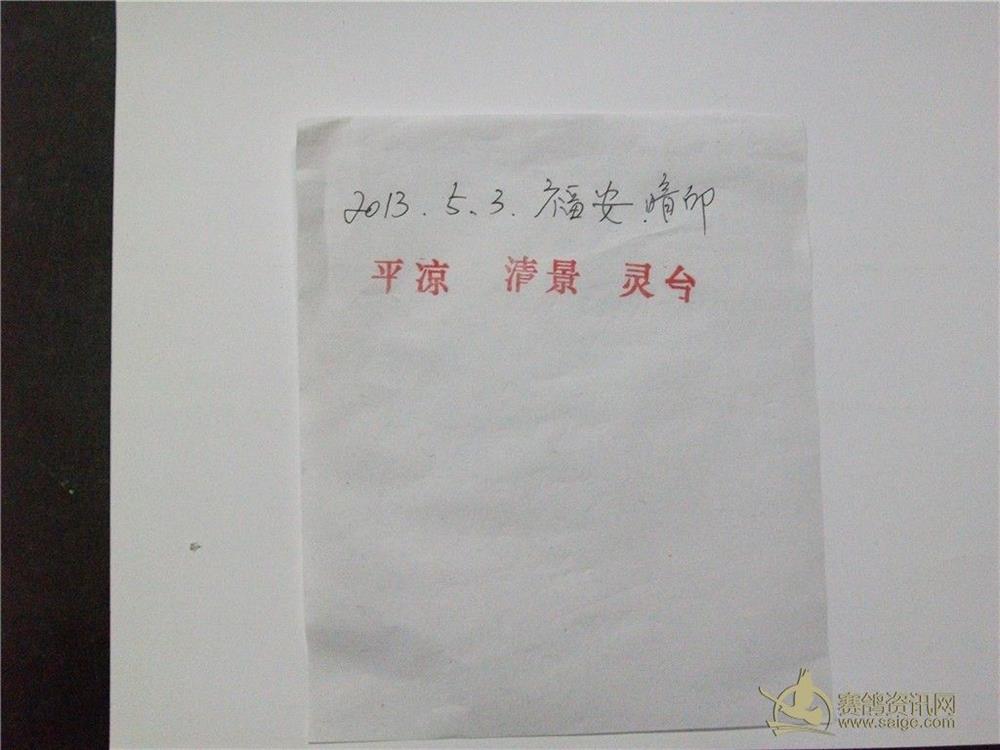 2013.5.3.福安暗印
平凉 清景 灵台
赛鸽资讯网
www.saige.com